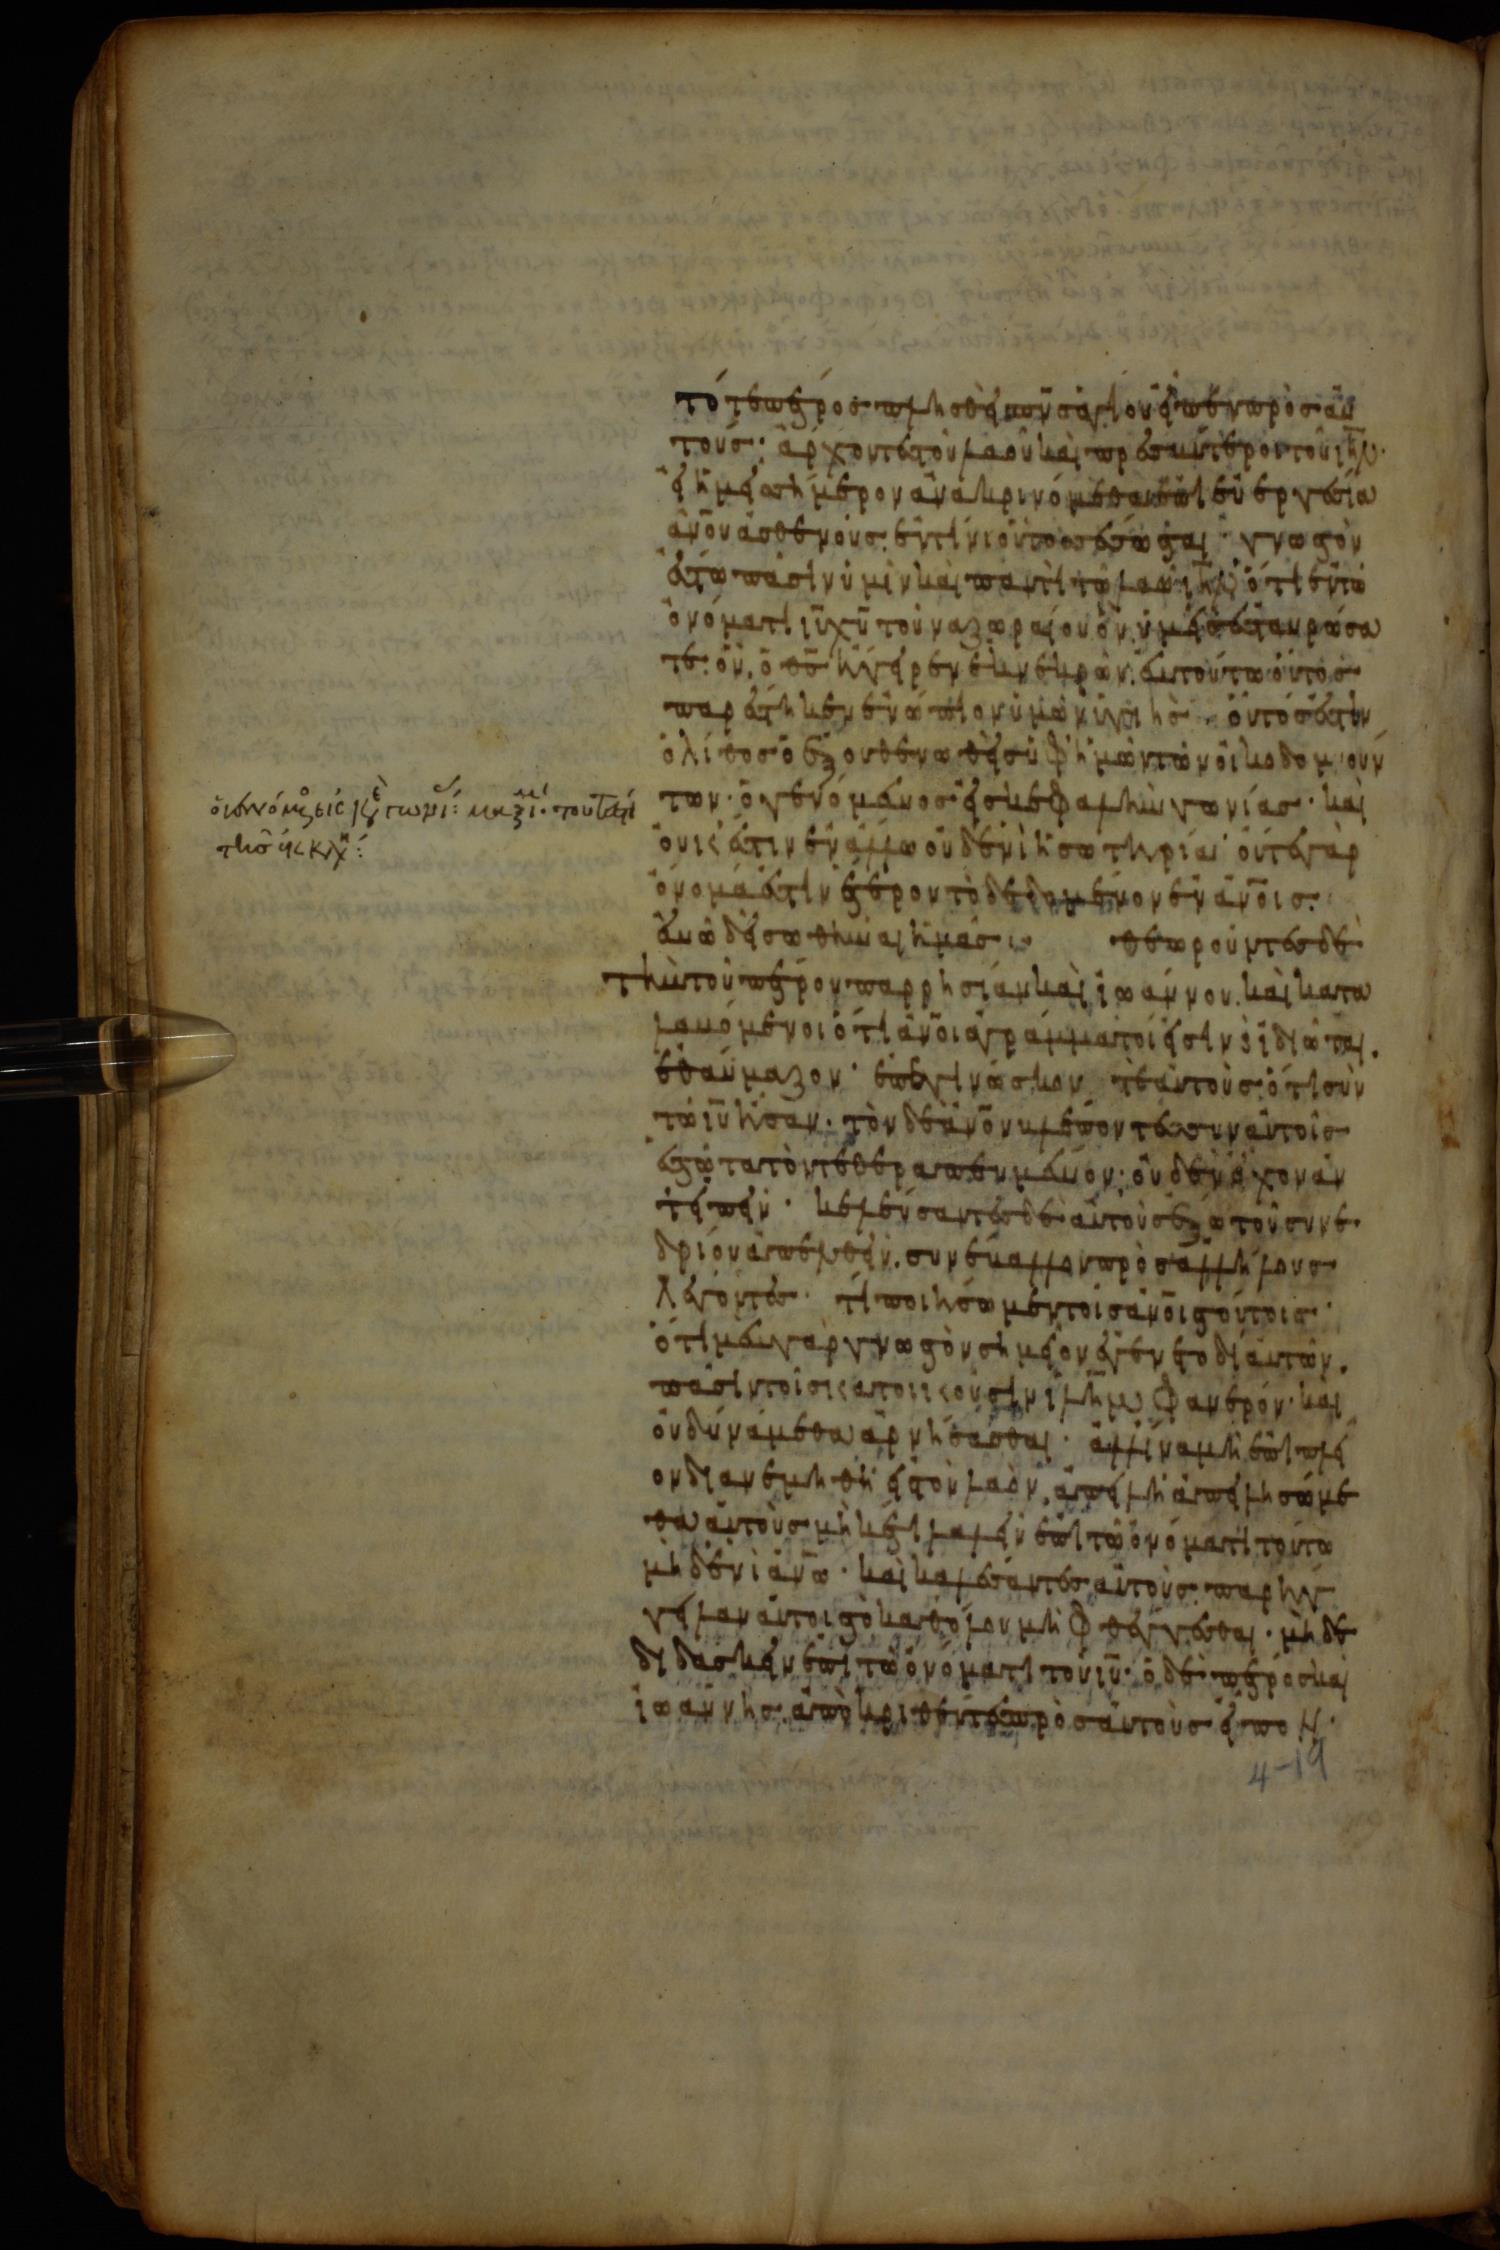 τότε πετρος πλησθεὶς πνς ἁγίου εἶπεν πρὸς αὐ
τούς· ἄρχοντες τοῦ λαοῦ καὶ πρεσβύτεροι τοῦ ιηλ·
εἰ ἡμεῖς σήμερον ἀνακρινόμεθα ἐπὶ εὐεργεσία
ἀνου ἀσθενοῦς ἐν τίνι οὗτος σέσωσται· γνωστὸν
ἔστω πᾶσιν ὑμῖν καὶ παντὶ τῶ λαῶ ιηλ ὅτι ἐν τῶ
ὀνόματι ιυ χυ τοῦ ναζωραίου ὃν ὑμεῖς ἐσταυρώσα
τε· ὃν ὁ θς ἤγειρεν ἐκ νεκρῶν· ἐν τούτω οὗτος
παρέστηκεν ἐνώπιον ὑμῶν ὑγιής· οὗτός ἐστιν
ὁ λίθος ὁ ἐξουθενωθεὶς ὑφ' ἡμῶν τῶν οἰκοδομούν
των· ὁ γενόμενος εἰς κεφαλὴν γωνίας· καὶ
οὐκ ἔστιν ἐν ἄλλω οὐδενὶ ἡ σωτηρία· οὔτε γὰρ
ὄνομά ἐστιν ἕτερον τὸ δεδομένον ἐν ἀνοις
ἐν ὧ δεῖ σωθῆναι ἡμᾶς· θεωροῦντες δὲ
τὴν τοῦ πέτρου παρρησίαν καὶ ἰωάννου· καὶ κατα
λαβόμενοι ὅτι ἀνοι ἀγράμματοί εἰσιν καὶ ἰδιῶται·
ἐθαύμαζον· ἐπεγίνωσκον τε αὐτοὺς ὅτι σὺν
τῶ ιυ ἦσαν· τὸν δὲ ἀνον βλέποντες σὺν αὐτοῖς
ἑστῶτα τὸν τεθεραπευμένον· οὐδὲν εἶχον ἀν
τειπεῖν· κελεύσαντες δὲ αὐτοὺς ἔξω τοῦ συνε
δρίου ἀπελθεῖν· συνέβαλλον πρὸς ἀλλήλους
λέγοντες· τί ποιήσωμεν τοῖς ἀνοις τούτοις·
ὅτι μὲν γὰρ γνωστὸν σημεῖον γέγονεν δι' αὐτῶν·
πᾶσιν τοῖς κατοικοῦσιν ιλημ φανερόν· καὶ
οὐ δυνάμεθα ἀρνήσασθαι· ἀλλ' ἵνα μὴ ἐπὶ πλεῖ
ον διανεμηθῆ εἰς τὸν λαὸν· ἀπειλῆ ἀπειλησώμε
θα αὐτοὺς μὴκέτι λαλεῖν ἐπὶ τῶ ὀνόματι τούτω
μηδενὶ ἀνω· καὶ καλέσαντες αὐτοὺς παρήγ
γειλαν αὐτοῖς τὸ καθόλου μὴ φθέγγεσθαι· μὴδὲ
διδάσκειν ἐπὶ τῶ ὀνόματι τοῦ ιυ· ὁ δὲ πέτρος καὶ
ἰωάννης ἀποκριθέντες πρὸς αὐτοὺς εἶπον·
4-19